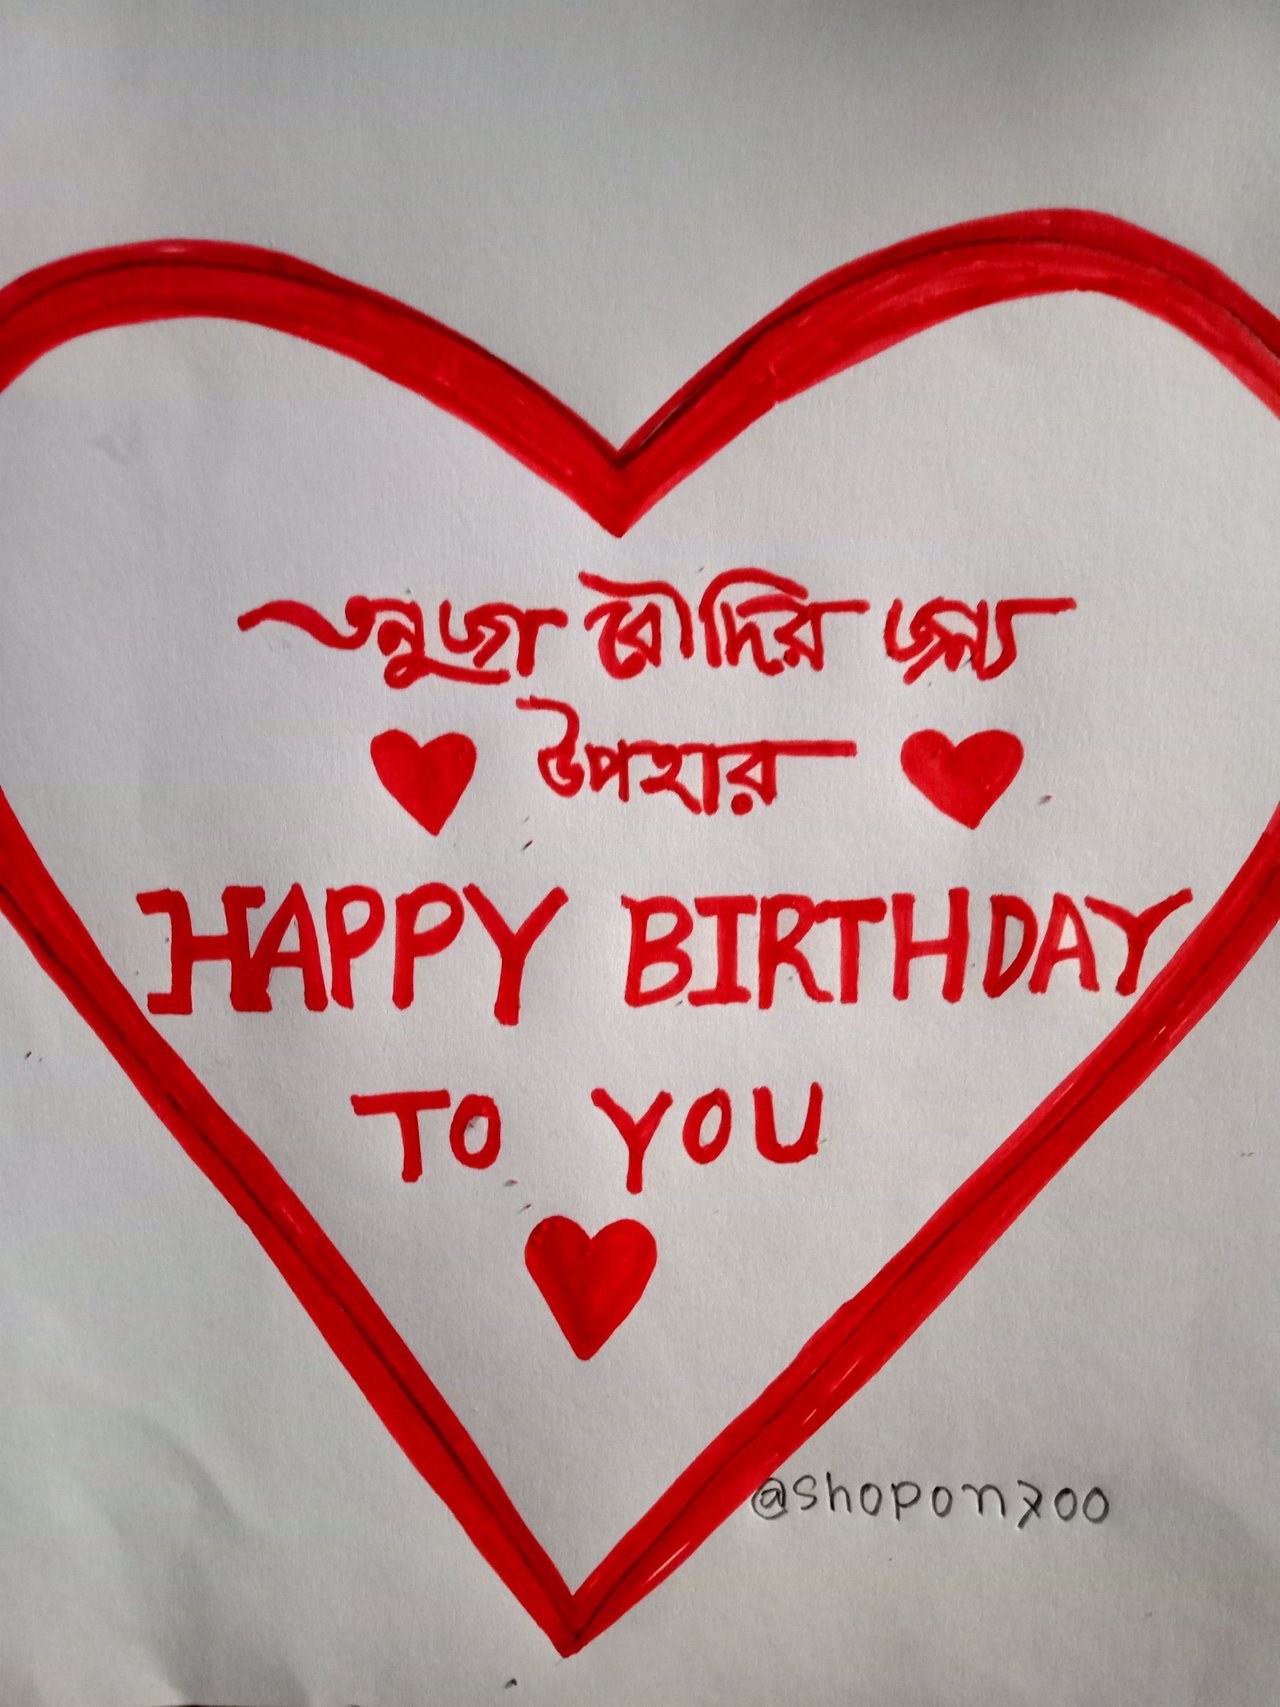 তনুজা বৌদির জন্য
উপহার
HAPPY BIRTHDAY
TO YOU
@shopon700